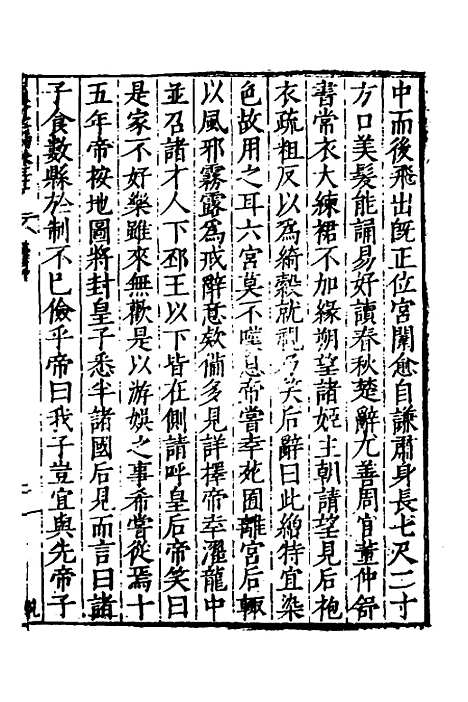 中而後飛出旣正位宮闈愈自謙肅身長七尺二寸
方口美髮能誦易好讀春秋楚辭尤善周官董仲舒
書常衣大練裙不加緣朔望諸姬主朝請望見后袍
衣疏粗反以爲綺縠就視乃笑后辭曰此繒特宜染
色故用之耳六宮莫不嘆息帝嘗幸苑囿離宮后輒
以風邪霧露爲戒辭意欵備多見詳擇帝幸濯龍中
並召諸才人下邳王以下皆在側請呼皇后帝笑曰
是家不好樂雖來無歡是以游娛之事希嘗從焉十
五年帝按地圖將封皇子悉半諸國后見而言曰諸
子食數縣於制不已儉乎帝曰我子豈宜與先帝子